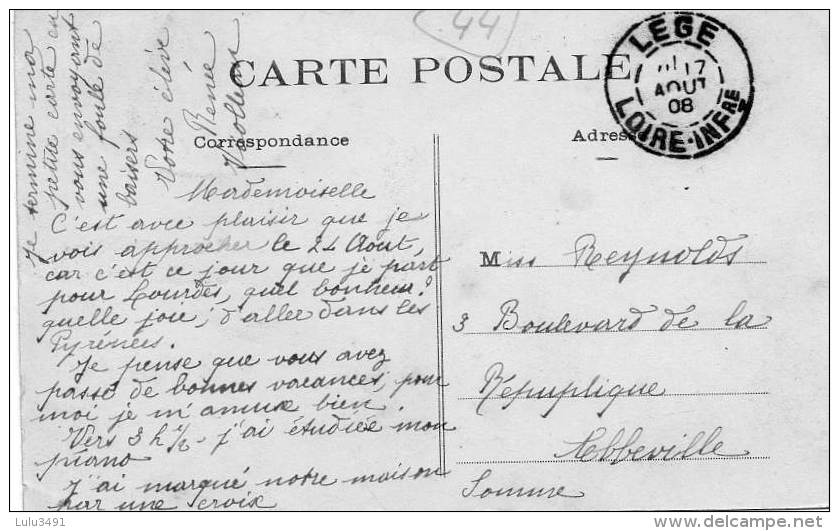 44
CARTE POSTALE
Correspondance
Adresse
LEGÉ
17
AOUT
08
LOIRE-INFRE
Mademoiselle
C'est avec plaisir que je
vois approcher le 24 Août,
car c'est ce jour que je part
pour Lourdes, quel bonheur!
quelle joie, d'aller dans les
Pyrénées.
Je pense que vous avez
passé de bonnes vacances, pour
moi je m'amuse bien.
Vers 3 h 1/2 j'ai étudiée mon
piano
J'ai marqué notre maison
par une croix
Je termine ma
petite carte en
vous envoyant
une foule de
baisers
Votre élève
Renée
Miss Reynolds
3 Boulevard de la
Répuplique
Abbeville
Somme
Lulu3491
delcampe.net